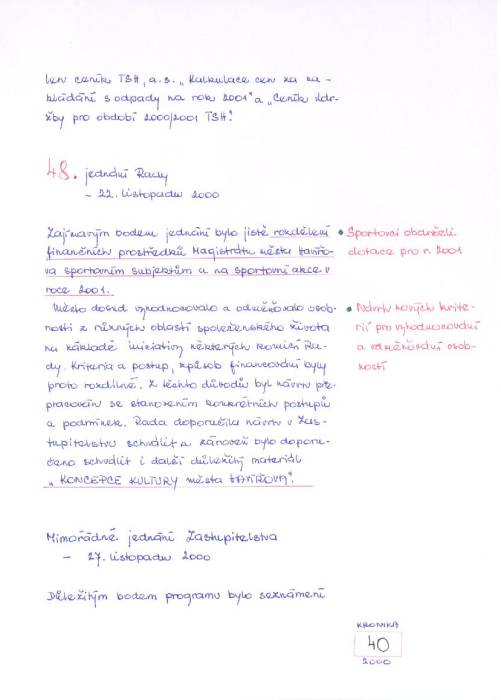 len ceník TSH, a.s. „Kalkulace cen za na-
kládání s odpady na rok 2001" a „Ceník údr-
žby pro období 2000/2001 TSH".
48. jednání Rady
- 22. listopadu 2000
Zajímavým bodem jednání bylo jistě rozdělení
finančních prostředků Magistrátu města Havířo-
va sportovním subjektům a na sportovní akce v
roce 2001.
• Sportovci obdrželi
dotace pro r. 2001
Město dosud vyhodnocovalo a odměňovalo osob-
nosti z různých oblastí společenského života
na základě iniciativy některých komisí Ra-
dy. Kriteria a postup, způsob financování byly
proto rozdílné. Z těchto důvodů byl návrh pře-
pracován se stanovením konkrétních postupů
a podmínek. Rada doporučila návrh v Zas-
tupitelstvu schválit a zároveň bylo doporu-
čeno schválit i další důležitý materiál
„KONCEPCE KULTURY města HAVÍŘOVA".
• Návrh nových krite-
rií pro vyhodnocování
a odměňování osob-
ností
Mimořádné jednání Zastupitelstva
- 27. listopadu 2000
Důležitým bodem programu bylo seznámení
KRONIKA
40
2000